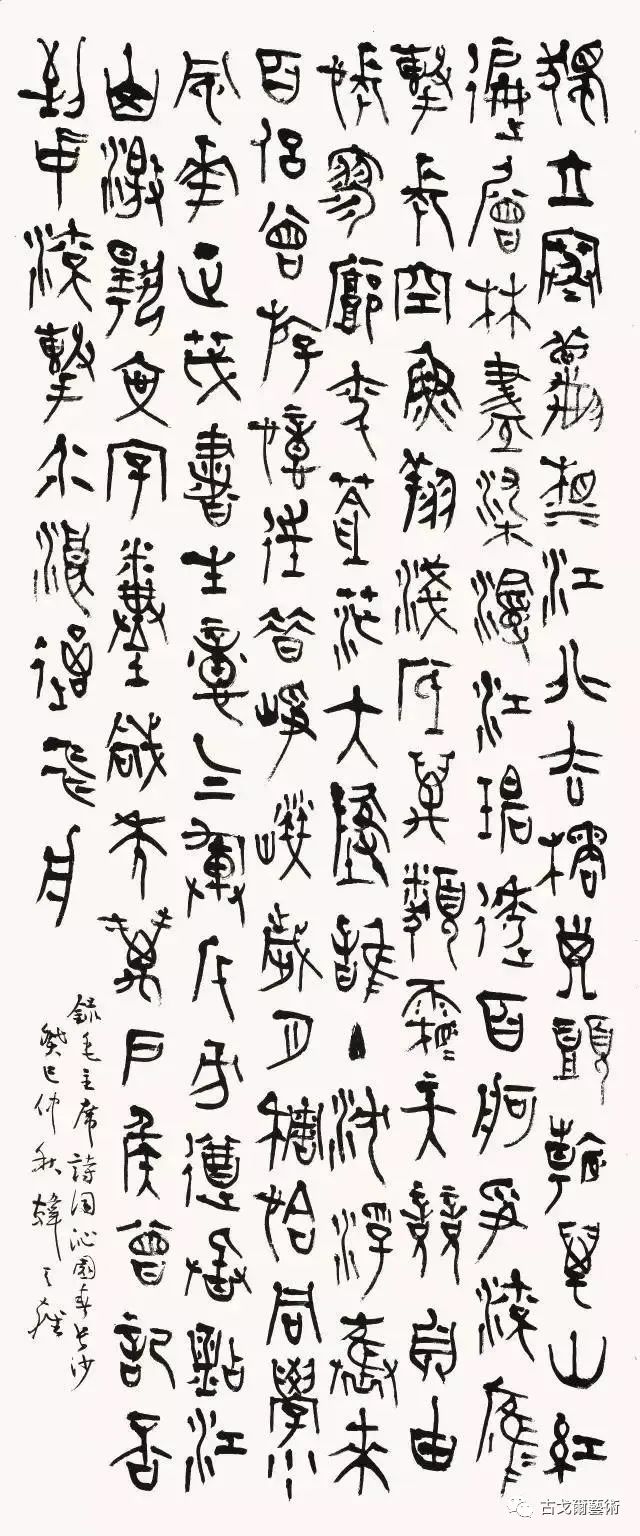 獨立寒秋湘江北去橘子頭看萬山紅
徧層林盡染漫江碧透百舸爭流鷹
擊長空魚翔淺底萬類霜天競自由
悵寥廓問蒼茫大地誰主沉浮攜來
百侶曾遊憶往昔崢嶸歲月稠恰同學少
風華正茂書生意气揮斥方遒指點江
山激揚文字糞土當年萬戶侯曾記否
到中流擊水浪遏飛舟
錄毛主席詩詞沁園春長沙
癸巳仲秋韓天雍
古戈爾藝術